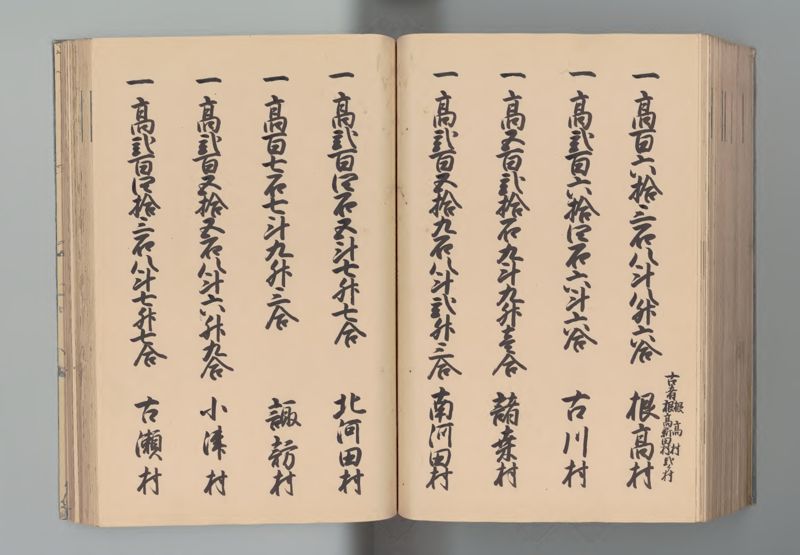 一高百六拾三石八斗八升六合 根高村
古者 根高村 根高新田村 弐ケ村
一高弐百六拾四石六斗六合 古川村
一高五百弐拾石九斗九升壱合 諸桑村
一高弐百五拾九石八斗弐升三合 南河田村
一高弐百四石五斗七升七合 北河田村
一高百七石七斗九升三合 諏訪村
一高弐百五拾五石八斗六升九合 小津村
一高弐百四拾三石八斗七升七合 古瀬村